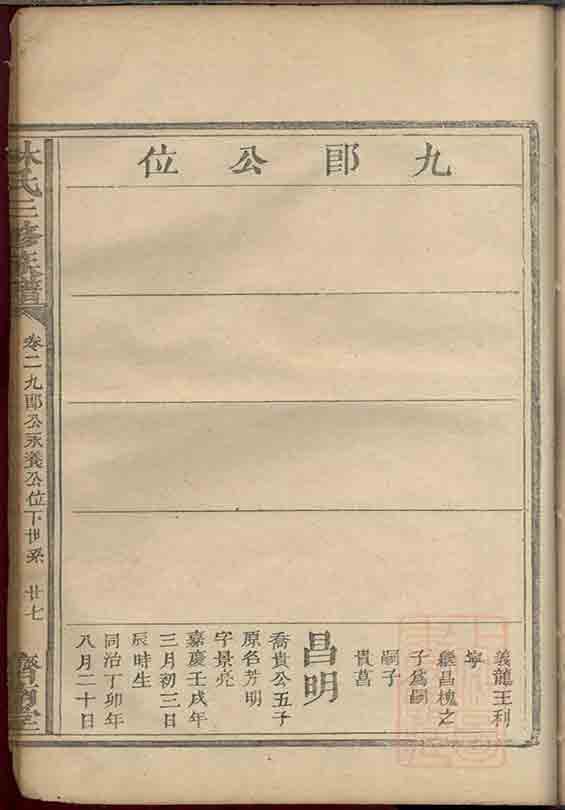 九郎公位
義龍王利
寧
繼昌槐之
子爲嗣
嗣子
貴菖
昌明
喬貴公五子
原名芳明
字景亮
嘉慶壬戌年
三月初三日
辰時生
同治丁卯年
八月二十日
林氏三修族譜
卷二九郎公永養公位下世系 廿七
堂